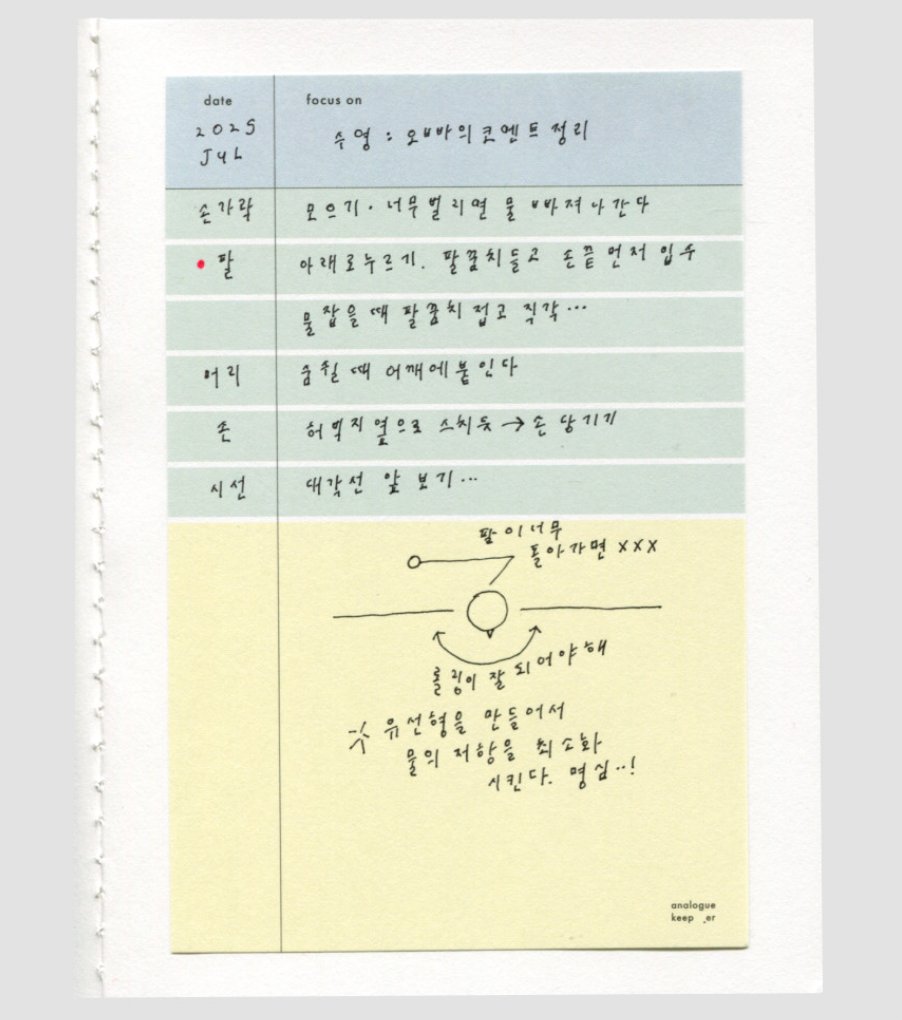 date
2025
JUL
focus on
수영 : 오빠의 코멘트 정리
손가락
모으기. 너무 벌리면 물 빠져나간다
팔
아래로 누르기. 팔꿈치 들고 손끝 먼저 입수
물 잡을 때 팔꿈치 접고 직각...
머리
숨쉴 때 어깨에 붙인다
손
허벅지 옆으로 스치듯 → 손 당기기
시선
대각선 앞 보기...
팔이 너무
돌아가면 xxx
롤링이 잘 되어야 해
유선형을 만들어서
물의 저항을 최소화
시킨다. 명심..!
analogue
keep_er